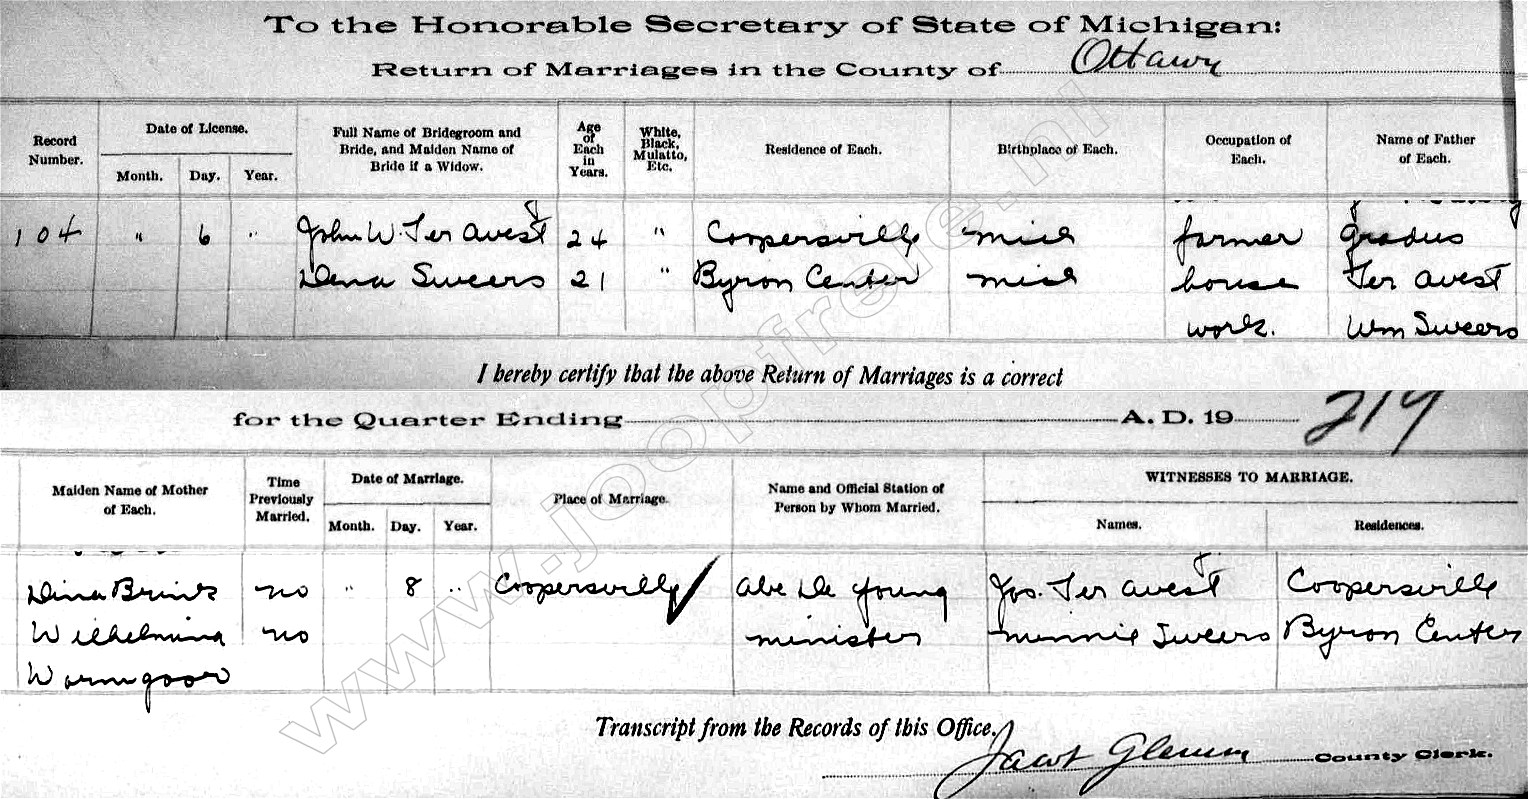 To the Honorable Secretary of State of Michigan:
Return of Marriages in the County of Ottawa
Record Number.
Date of License.
Month. Day. Year.
Full Name of Bridegroom and Bride, and Maiden Name of Bride if a Widow.
Age of Each in Years.
White, Black, Mulatto, Etc.
Residence of Each.
Birthplace of Each.
Occupation of Each.
Name of Father of Each.
104 " 6 " John W. Ter Avest 24 " Coopersville Mich farmer Gradus
Dena Sweers 21 " Byron Center Mich house Ter Avest
work. Wm Sweers
I hereby certify that the above Return of Marriages is a correct
for the Quarter Ending A. D. 19 219
Maiden Name of Mother of Each.
Time Previously Married.
Date of Marriage.
Month. Day. Year.
Place of Marriage.
Name and Official Station of Person by Whom Married.
WITNESSES TO MARRIAGE.
Names. Residences.
Dina Brink no " 8 " Coopersville Abe De Young Jos. Ter Avest Coopersville
Wilhelmina no minister Minnie Sweers Byron Center
Warmgoor
Transcript from the Records of this Office.
Jacob Glerum County Clerk.
www.joopfrere.nl